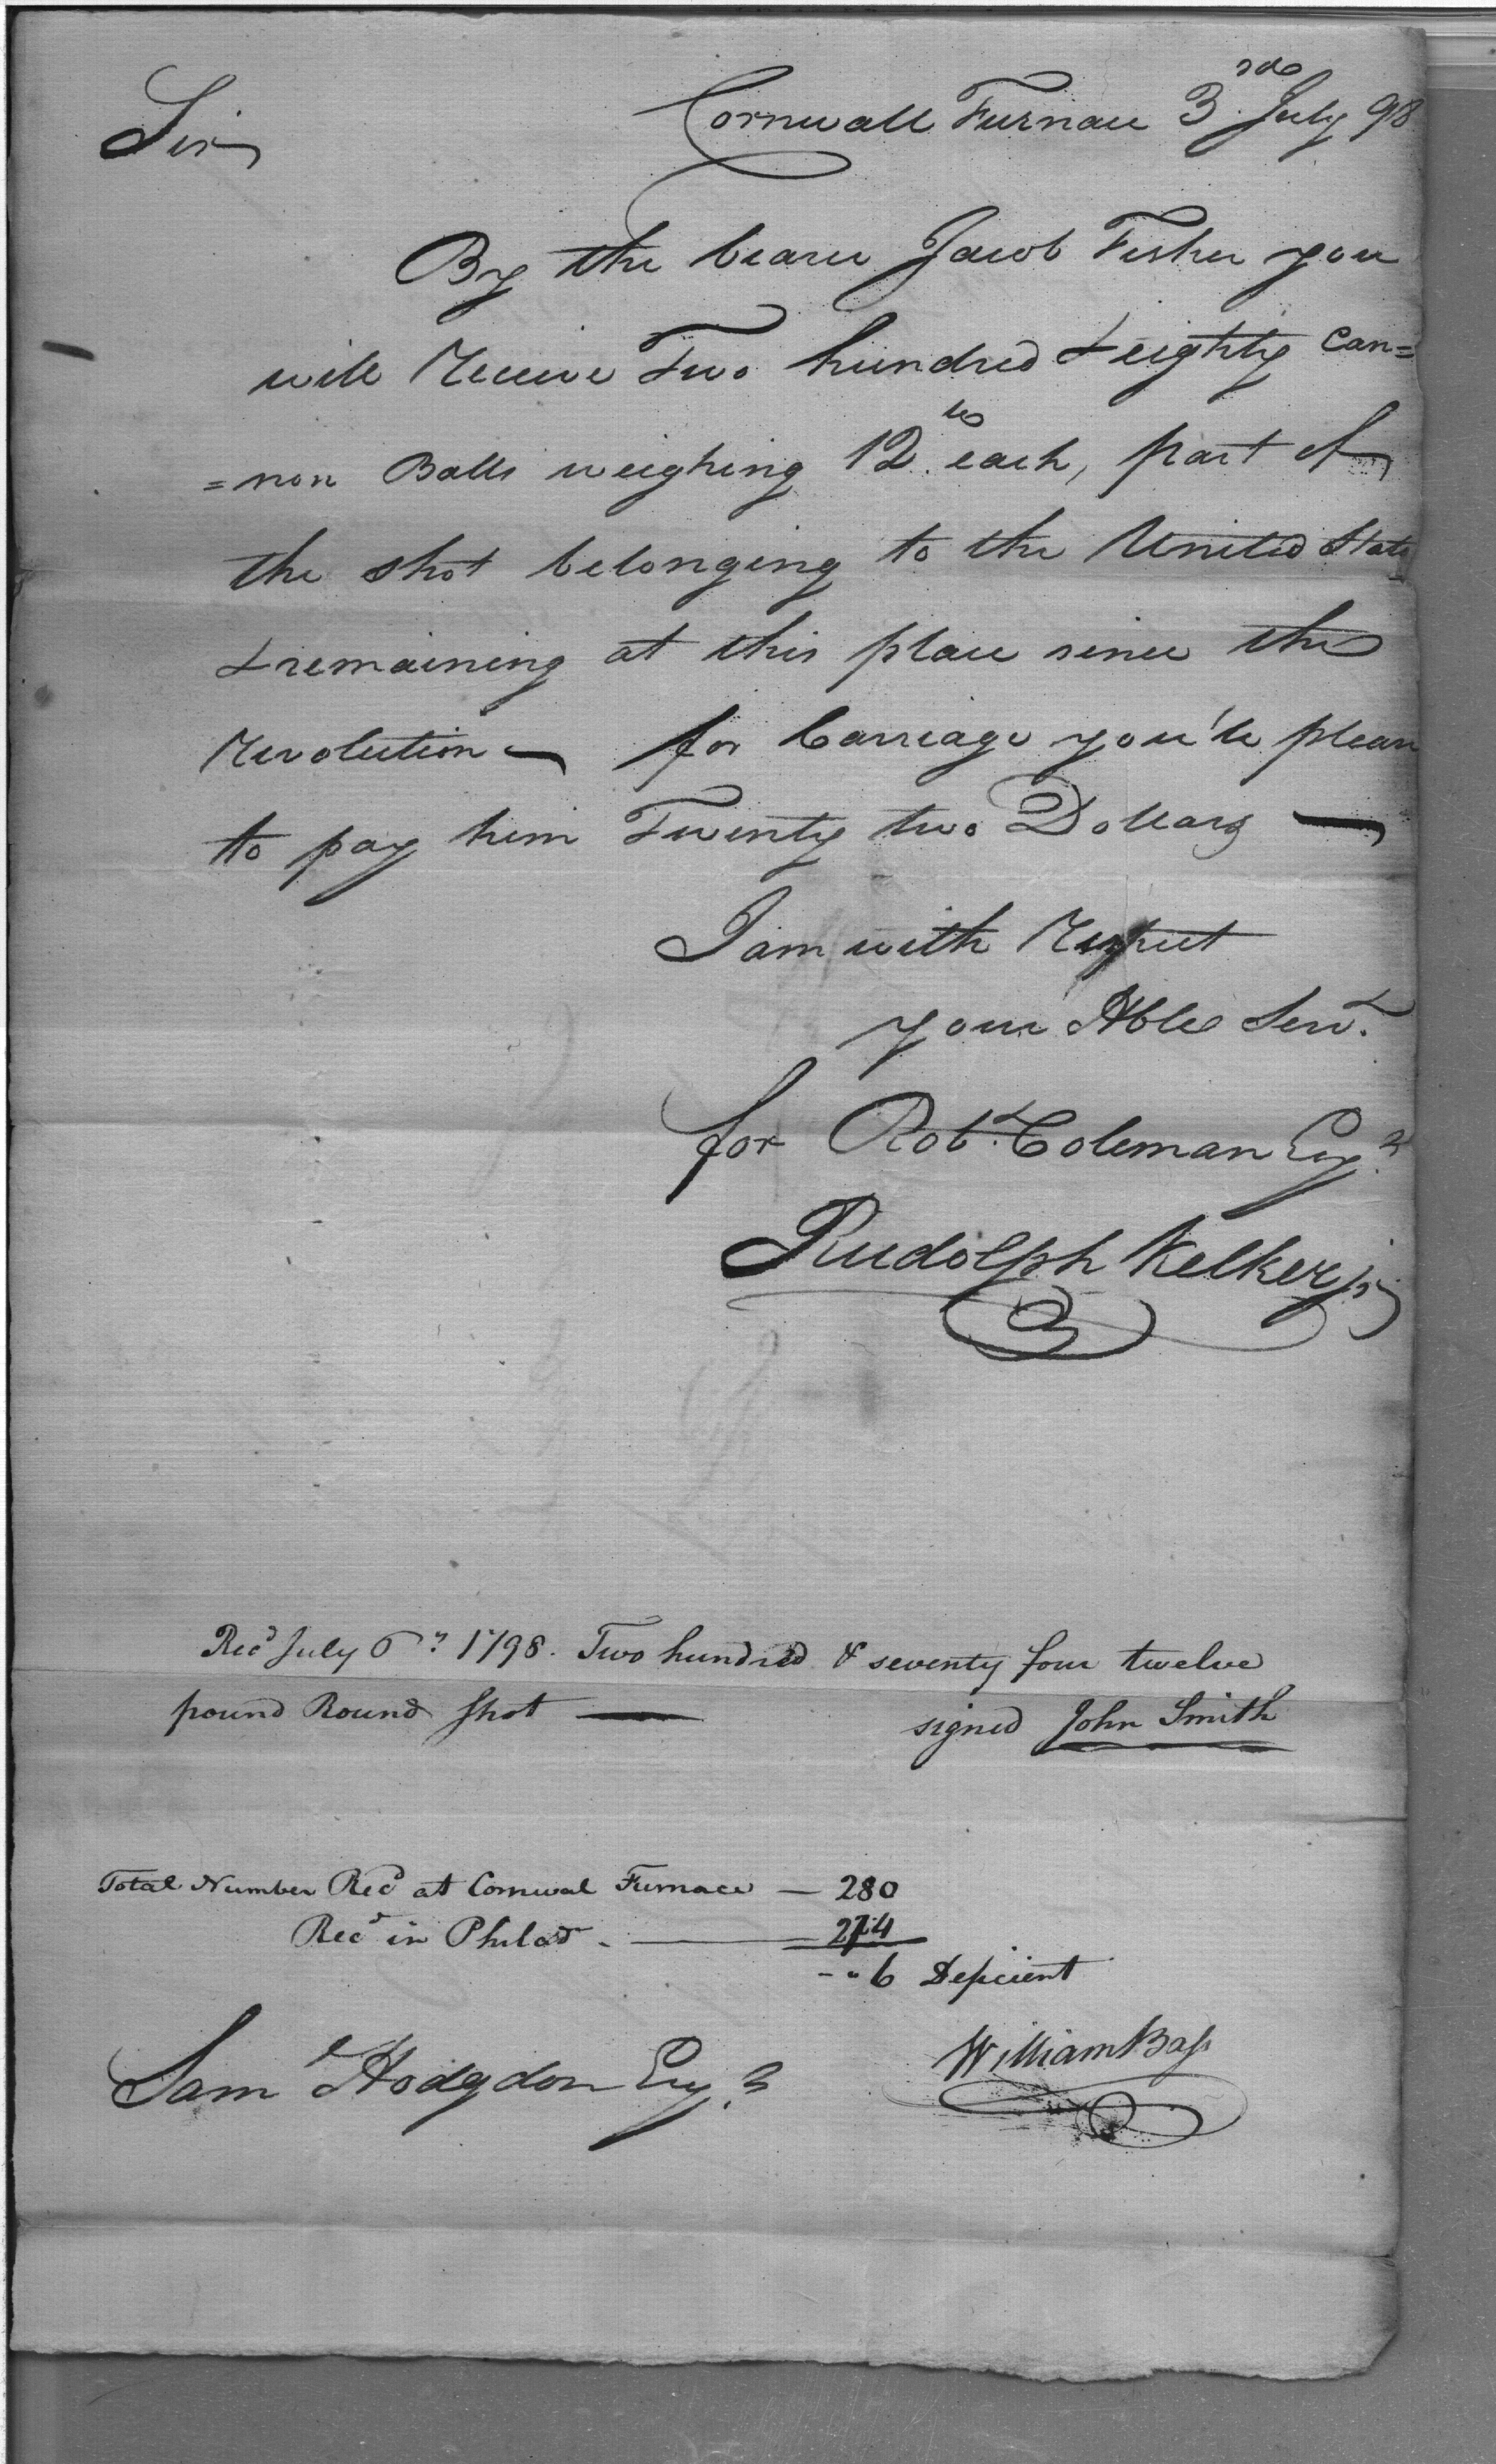 Cornwall Furnace 3rd July 98
Sir,
By the bearer Jacob Fisher you
will Receive Two hundred & eighty Can=
=non Balls weighing 12 lb each, part of
the shot belonging to the United States
& remaining at this place since the
Revolution — for Carriage you'le please
to pay him Twenty two Dollars —
I am with Respect
your Hble Servt.
for Robt. Coleman Esqr.
Rudolph Kelker jr
Recd July 6th 1798. Two hundred & seventy four twelve
pound Round Shot —
signed John Smith
Total Number Recd at Cornwal Furnace — 280
Recd in Philad. — 274
6 Deficient
William Bass
Saml Hodgdon Esqr.